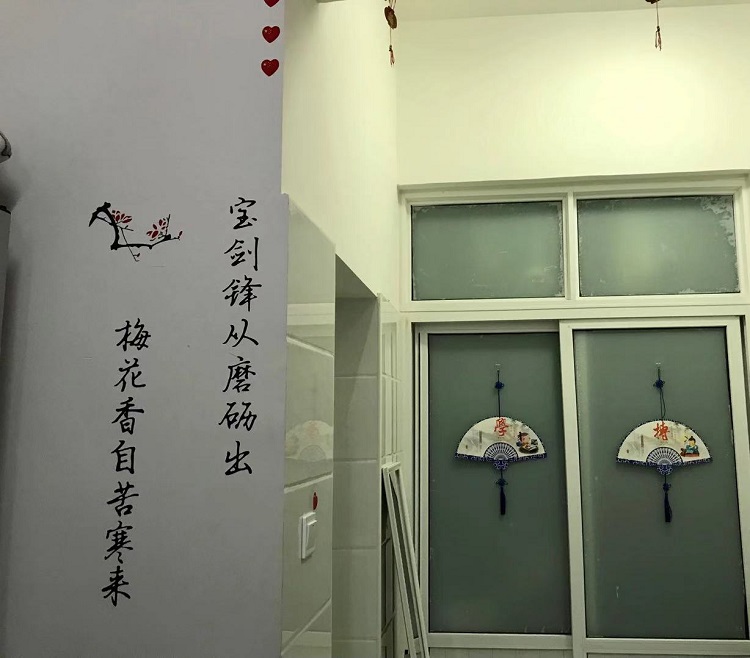 宝剑锋从磨砺出
梅花香自苦寒来
學
博